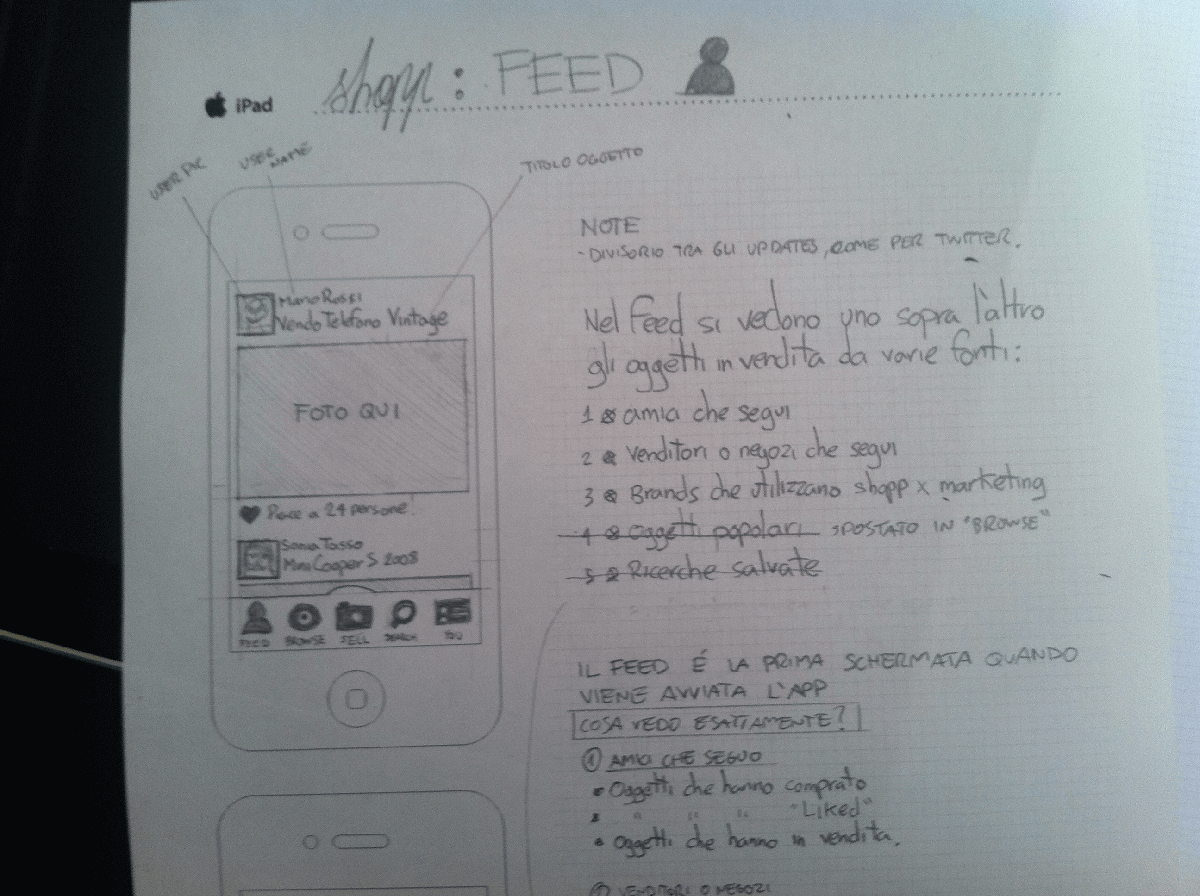 shopp: FEED
iPad
USER PIC
USER NAME
TITOLO OGGETTO
Mario Rossi
Vendo Telefono Vintage
FOTO QUI
Piace a 24 persone!
Sonia Tasso
Mini Cooper S 2008
FEED BROWSE SELL SEARCH YOU
NOTE
- DIVISORIO TRA GLI UPDATES, COME PER TWITTER.
Nel Feed si vedono uno sopra l'altro
gli oggetti in vendita da varie fonti:
1 amici che segui
2 Venditori o negozi che segui
3 Brands che utilizzano shopp x marketing
4 Oggetti popolari SPOSTATO IN "BROWSE"
5 Ricerche salvate
IL FEED É LA PRIMA SCHERMATA QUANDO
VIENE AVVIATA L'APP
COSA VEDO ESATTAMENTE?
1 AMICI CHE SEGUO
• Oggetti che hanno comprato
• " " " "Liked"
• Oggetti che hanno in vendita.
2 VENDITORI O NEGOZI